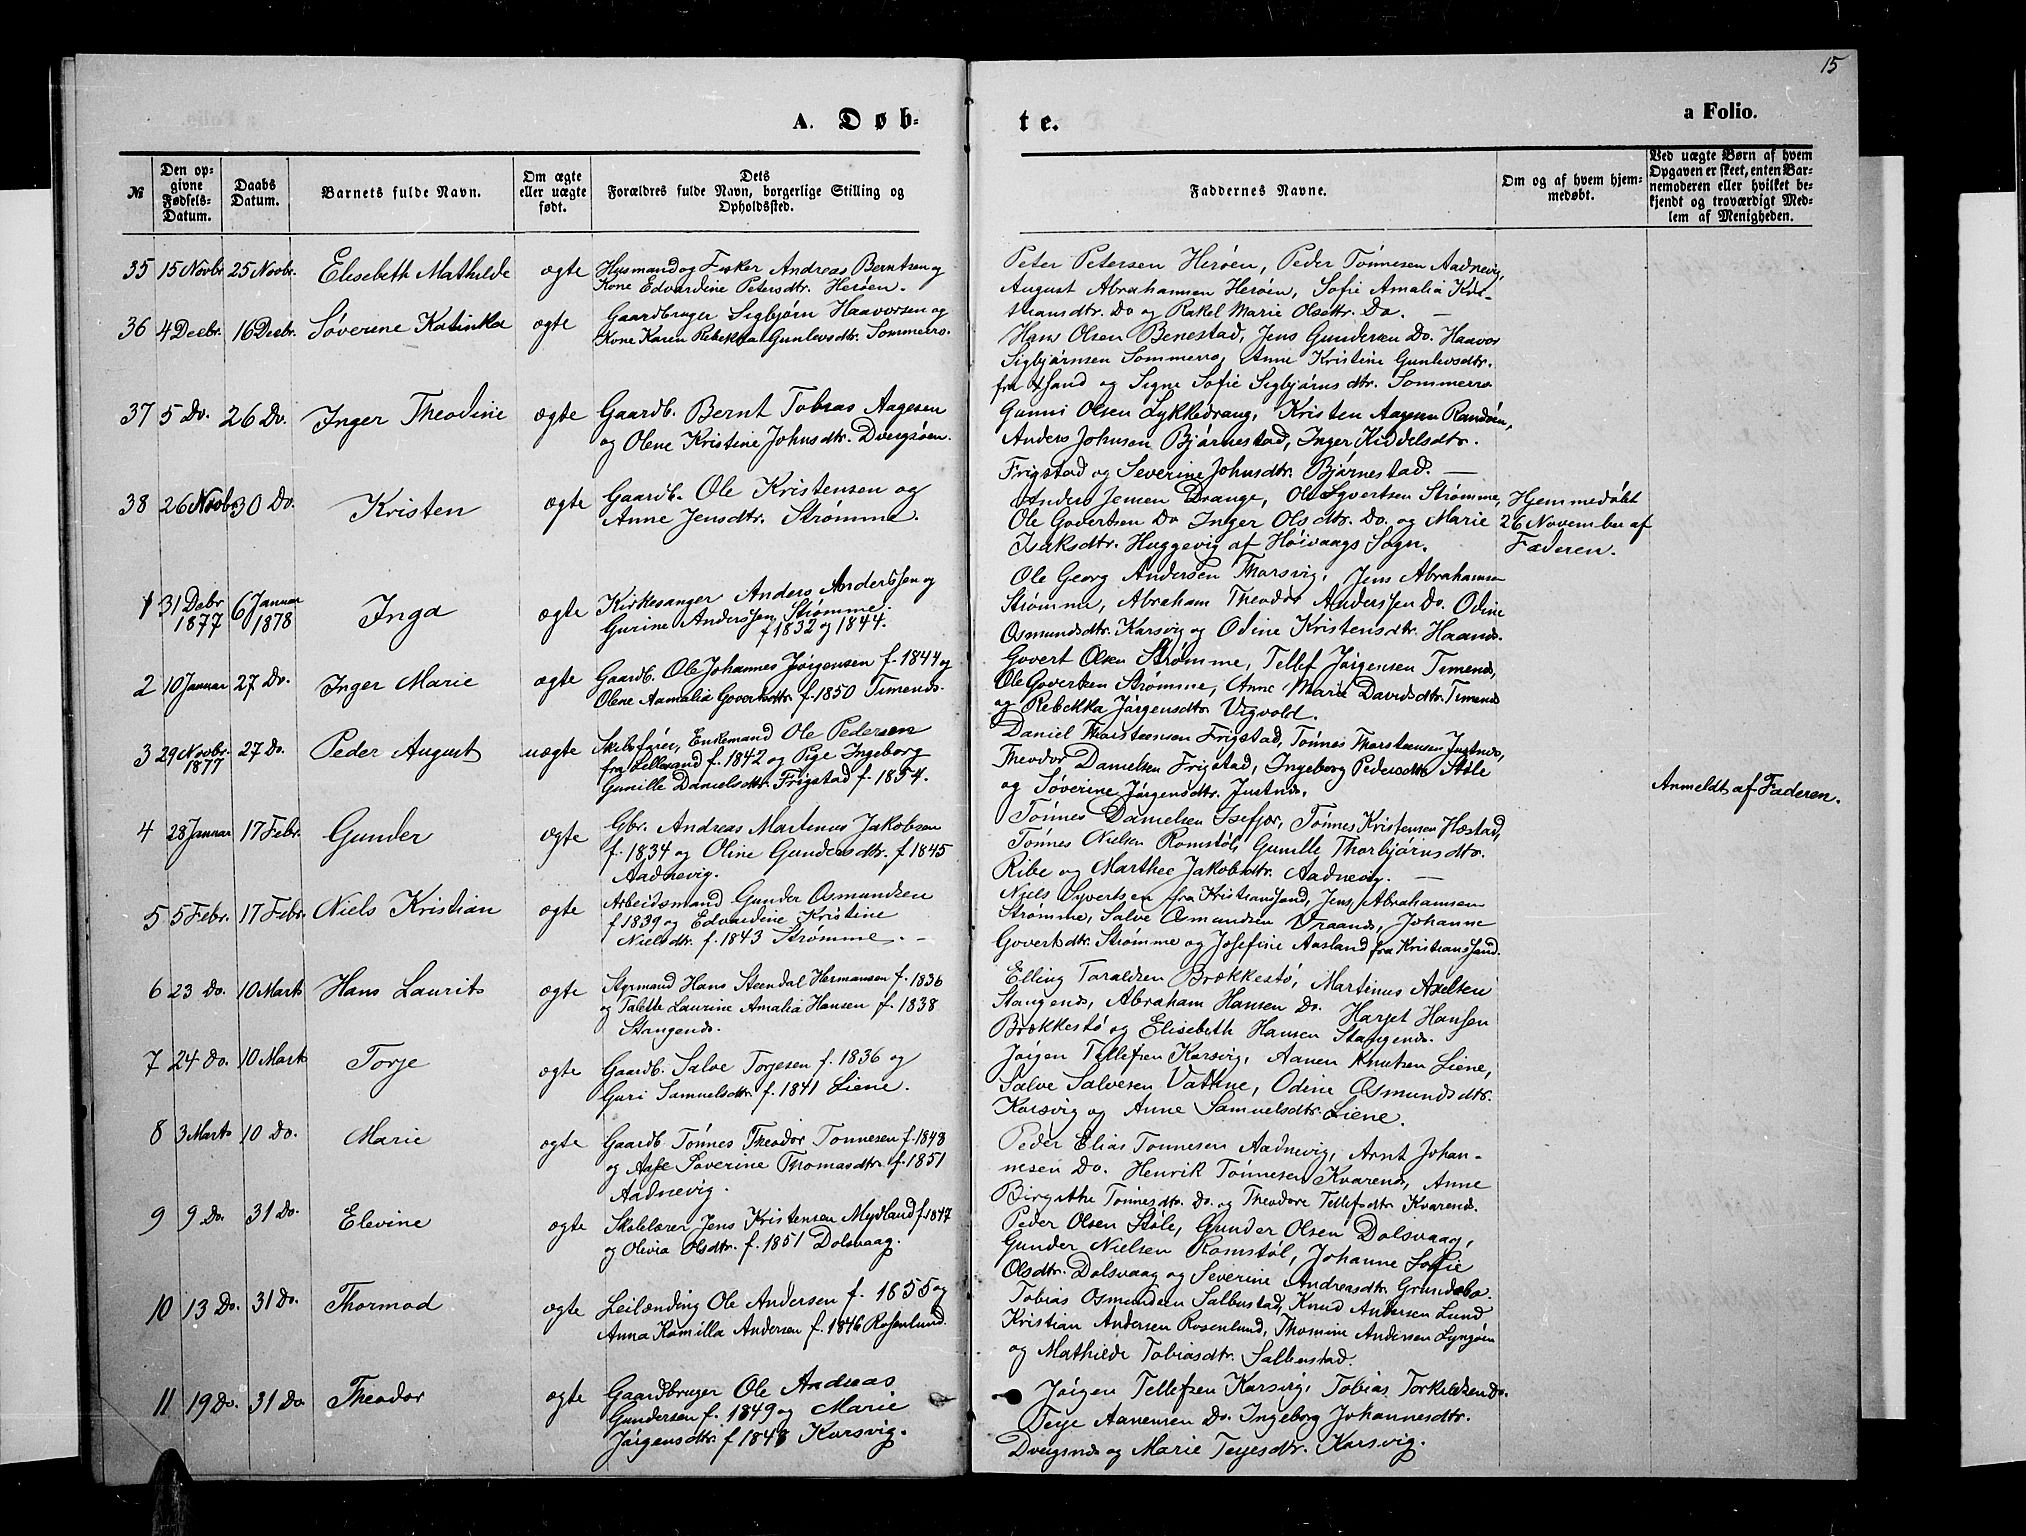 15
A. Døb-
te.
a Folio.
№
Den op-
givne
Fødsels-
Datum.
Daabs
Datum.
Barnets fulde Navn.
Om ægte
eller uægte
født.
Dets
Forældres fulde Navn, borgerlige Stilling og
Opholdssted.
Faddernes Navne.
Om og af hvem hjem-
medøbt.
Ved uægte Børn af hvem
Opgaven er skeet, enten Bar-
nemoderen eller hvilket be-
kjendt og troværdigt Med-
lem af Menigheden.
35 15 Novbr. 25 Novbr. Elisebeth Mathilde ægte
Husmand og Fisker Andreas Berntsen og
Kone Edvardine Petersdtr. Herøen.
Peter Petersen Herøen, Peder Tønnesen Aadnevig,
August Abrahamsen Herøen, Sofie Amalia Kri-
stiansdtr. Do og Rakel Marie Olsdtr. Do.
36 4 Decbr. 16 Decbr. Søverine Katinka ægte
Gaardbruger Sigbjørn Haavorsen og
Kone Karen Rebekka Gunlevsdtr. Sommerro.
Hans Olsen Benestad, Jens Gundersen Do. Haavor
Sigbjørnsen Sommerro, Anne Kristine Gunlevsdtr.
fra Xsand og Signe Sofie Sigbjørnsdtr. Sommerro
37 5 Do. 26 Do. Inger Theodine ægte
Gaardb. Bernt Tobias Aagesen
og Olene Kristine Johnsdtr. Dvergsøen.
Gunni Olsen Lykkedrang, Kristen Aagesen Randøen,
Anders Johnsen Bjørnestad, Inger Kiddelsdtr.
Frigstad og Severine Johnsdtr. Bjørnestad.
38 26 Novbr. 30 Do. Kristen ægte
Gaardb. Ole Kristensen og
Anne Jensdtr. Strømme.
Anders Jensen Drange, Ole Syvertsen Strømme,
Ole Govertsen Do Inger Olsdtr. Do. og Marie
Isaksdtr. Huggevig af Høivaags Sogn.
Hjemmedøbt
26 November af
Faderen.
1 31 Debr. 1877 6 Januar 1878 Inga ægte
Kirkesanger Anders Anderssen og
Gurine Anderssen, Strømme.
f 1832 og 1844.
Ole Georg Andersen Tharsvig, Jens Abrahamsen
Strømme, Abraham Theodor Anderssen Do. Odine
Osmundsdtr. Karsvig og Odine Kristensdtr. Haanes.
2 10 Januar 27 Do. Inger Marie ægte
Gaardb. Ole Johannes Jørgensen f. 1844 og
Olene Aamalia Govertsdtr. f. 1850 Timenes.
Govert Olsen Strømme, Tellef Jørgensen Timenes,
Ole Govertsen Strømme, Anne Marie Davidsdtr. Timenes
og Rebekka Jørgensdtr. Vigvold.
3 29 Novbr. 1877 27 Do. Peder August uægte
Skibsfører, Enkemand Ole Pedersen
fra Lillesand f. 1842 og Pige Ingeborg
Gunille Danielsdtr. Frigstad f. 1854.
Daniel Thorsteensen Frigstad, Tønnes Thorsteensen Justnes,
Theodor Danielsen Frigstad, Ingeborg Pedersdtr. Støle
og Søverine Jørgensdtr. Justnes.
Anmeldt af Faderen.
4 28 Januar 17 Febr. Gunder ægte
Gbr. Andreas Martinus Jakobsen
f. 1834 og Oline Gundersdtr. f 1845
Aadnevig.
Tønnes Danielsen Isefjær, Tønnes Kristensen Hæstad,
Tønnes Nielsen Romstøl, Gunille Thorbjørnsdtr.
Ribe og Marthee Jakobsdtr. Aadnevig.
5 5 Febr. 17 Febr. Niels Kristian ægte
Arbeidsmand Gunder Osmundsen
f 1839 og Edvardine Kristine
Nielsdtr. f. 1843 Strømme.
Niels Syvertsen fra Kristianssand, Jens Abrahamsen
Strømme, Salve Osmundsen Vraanes, Johanne
Govertsdtr. Strømme og Josefine Aasland fra Kristianssand.
6 23 Do. 10 Marts Hans Laurits ægte
Styrmand Hans Steendal Hermansen f. 1836
og Talette Laurine Amalia Hansen f. 1838
Stangenes.
Elling Taraldsen Brækkestø, Martinus Axelsen
Stangenes, Abraham Hansen Do. Harjet Hansen
Brækkestø og Elisebeth Hansen Stangenes.
7 24 Do. 10 Marts Torje ægte
Gaardb. Salve Torjesen f. 1836 og
Guri Samuelsdtr. f. 1841 Liene.
Jørgen Tellefsen Karsvig, Aanen Knutsen Liene,
Salve Salvesen Vathne, Odine Osmundsdtr.
Karsvig og Anne Samuelsdtr. Liene.
8 3 Marts 10 Do. Marie ægte
Gaardb. Tønnes Theodor Tønnesen f. 1848
og Aase Søverine Thomasdtr. f. 1851
Aadnevig.
Peder Elias Tønnesen Aadnevig, Arnt Johan-
nesen Do. Henrik Tønnesen Kvarenes, Anne
Birgithe Tønnesdtr. Do. og Theodore Tellefsdtr. Kvarenes.
9 9 Do. 31 Do. Elevine ægte
Skolelærer Jens Kristensen Mydland f. 1847
og Olivia Olsdtr. f. 1851 Dolsvaag.
Peder Olsen Støle, Gunder Olsen Dolsvaag,
Gunder Nielsen Romstøl, Johanne Sofie
Olsdtr. Dolsvaag og Severine Andreasdtr. Grundebø.
10 13 Do. 31 Do. Thormod ægte
Leilænding Ole Andersen f. 1855 og
Anna Kamilla Andersen f. 1846 Rosenlund.
Tobias Osmundsen Salbustad, Knud Andersen Lund
Kristian Andersen Rosenlund, Thomine Andersen Lyngøen
og Mathilde Tobiasdtr. Salbustad.
11 19 Do. 31 Do Theodor ægte
Gaardbruger Ole Andreas
Gundersen f. 1849 og Marie
Jørgensdtr. f 1848 Karsvig.
Jørgen Tellefsen Karsvig, Tobias Torkildsen Do.
Terje Aanensen Do. Ingeborg Johannesdtr.
Dvergsnes og Marie Terjesdtr. Karsvig.